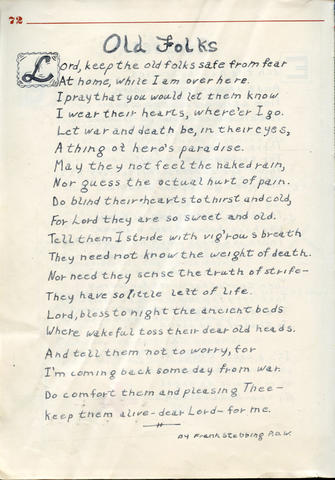 72
Old Folks
Lord, keep the old folks safe from fear
At home, while I am over here.
I pray that you would let them know
I wear their hearts, where'er I go.
Let war and death be, in their eyes,
A thing of hero's paradise.
May they not feel the naked rain,
Nor guess the actual hurt of pain.
Do blind their hearts to thirst and cold,
For Lord they are so sweet and old.
Tell them I stride with vig'rous breath
They need not know the weight of death.
Nor need they sense the truth of strife-
They have so little left of life.
Lord, bless to night the ancient beds
Where wakeful toss their dear old heads.
And tell them not to worry, for
I'm coming back some day from war.
Do comfort them and pleasing Thee-
Keep them alive-dear Lord-for me.
By Frank Stebbing P.O.W.